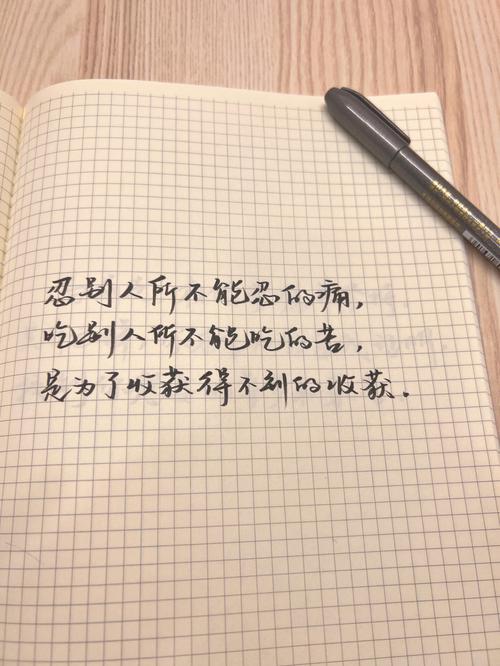 忍别人所不能忍的痛，
吃别人所不能吃的苦，
是为了收获得不到的收获．